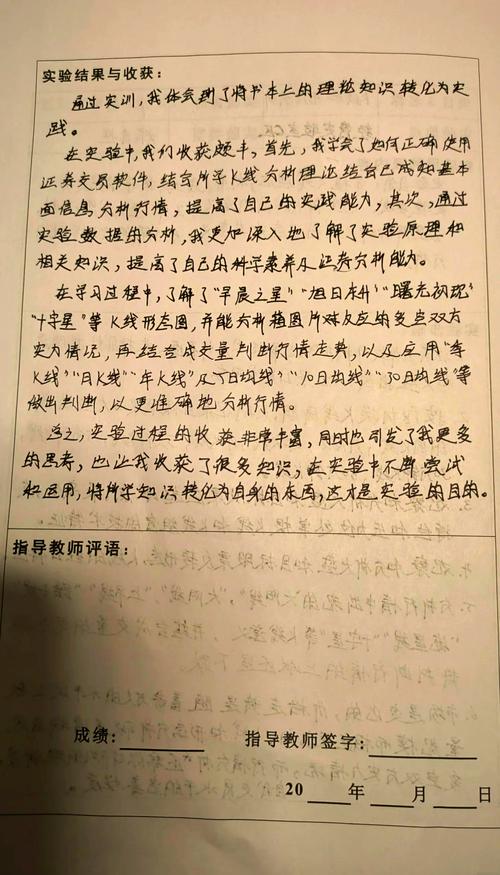 实验结果与收获：
通过实训，我体会到了将书本上的理论知识转化为实
践。
在实验中，我们收获颇丰。首先，我学会了如何正确使用
证券交易软件，结合所学K线分析理论结合已成知基本
面信息分析行情，提高了自己的实践能力，其次，通过
实验数据的分析，我更加深入地了解了实验原理和
相关知识，提高了自己的科学素养及证券分析能力。
在学习过程中，了解了“早晨之星”“旭日东升”“曙光初现”
“十字星”等K线形态图，并能分析在图片对反应的多空双方
实力情况，再结合成交量判断行情走势，以及应用“年
K线”“日K线”“年K线”及“5日均线”“10日均线”“30日均线”等
做出判断，以更准确地分析行情。
总之，实验过程的收获非常丰富，同时也引发了我更多
的思考，也让我收获了很多知识，在实验中不断尝试
和运用，将所学知识转化为自身的东西，这才是实验的目的。
指导教师评语：
成绩：
指导教师签字：
20 年 月 日